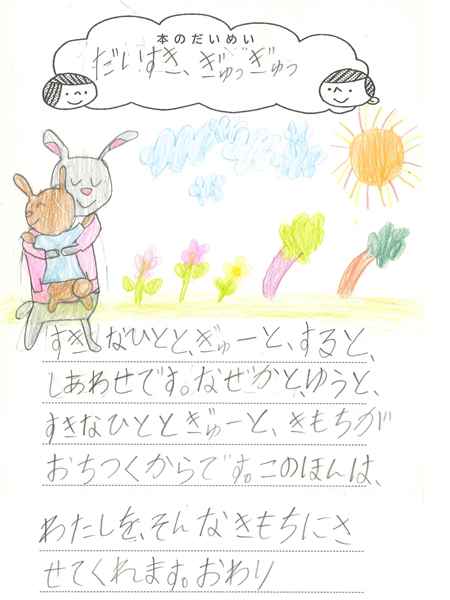 本のだいめい
だいすき、ぎゅっぎゅっ
すきなひとと、ぎゅーと、すると、
しあわせです。なぜかと、ゆうと、
すきなひととぎゅーと、きもちが
おちつくからです。このほんは、
わたしを、そんなきもちにさ
せてくれます。おわり